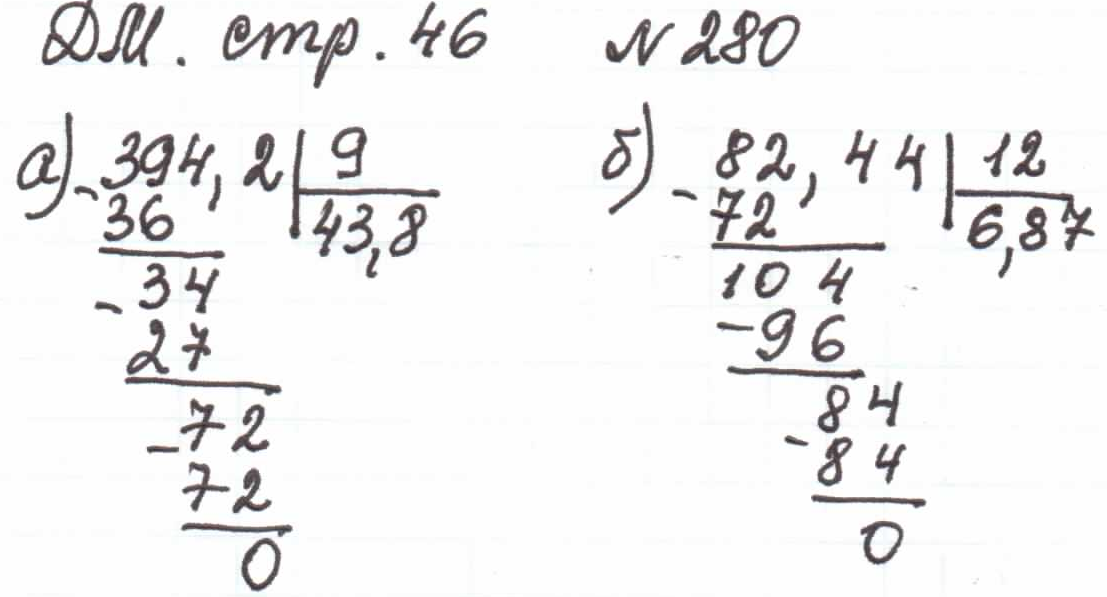 ДМ. стр. 46 № 280
а) -394,2 | 9
36 43,8
-34
27
-72
72
0
б) -82,44 | 12
72 6,87
104
-96
84
-84
0